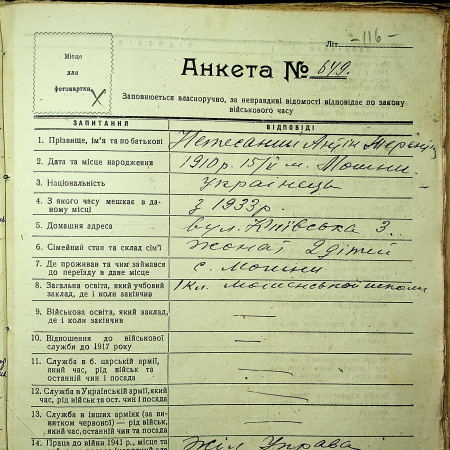 Літ. -116-
Місце
для
фотокартки
Анкета № 649.
Заповнюється власноручно, за неправдиві відомості відповідає по закону
військового часу
ЗАПИТАННЯ
ВІДПОВІДІ
1. Прізвище, ім'я та по батькові
Нетесаний Антін
2. Дата та місце народження
1910 р. 15/ м. Мошни
3. Національність
українець
4. З якого часу мешкає в да-
ному місці
з 1933 р.
5. Домашня адреса
вул. Київська 3.
6. Сімейний стан та склад сім'ї
жонат 2 дітей
7. Де проживав та чим займався
до переїзду в дане місце
с. Мошни
8. Загальна освіта, який учбовий
заклад, де і коли закінчив
1 кл. мошенської школи
9. Військова освіта, який заклад,
де і коли закінчив
10. Відношення до військової
служби до 1917 року
11. Служба в б. царській армії,
час, рід військ та
останній чин і посада
12. Служба в Українській армії, який
час, рід військ та ост. чин і посада
13. Служба в інших арміях (за ви-
нятком червоної) — рід військ,
який час, останній чин та посада
14. Праця до війни 1941 р., місце та
Жил Управа